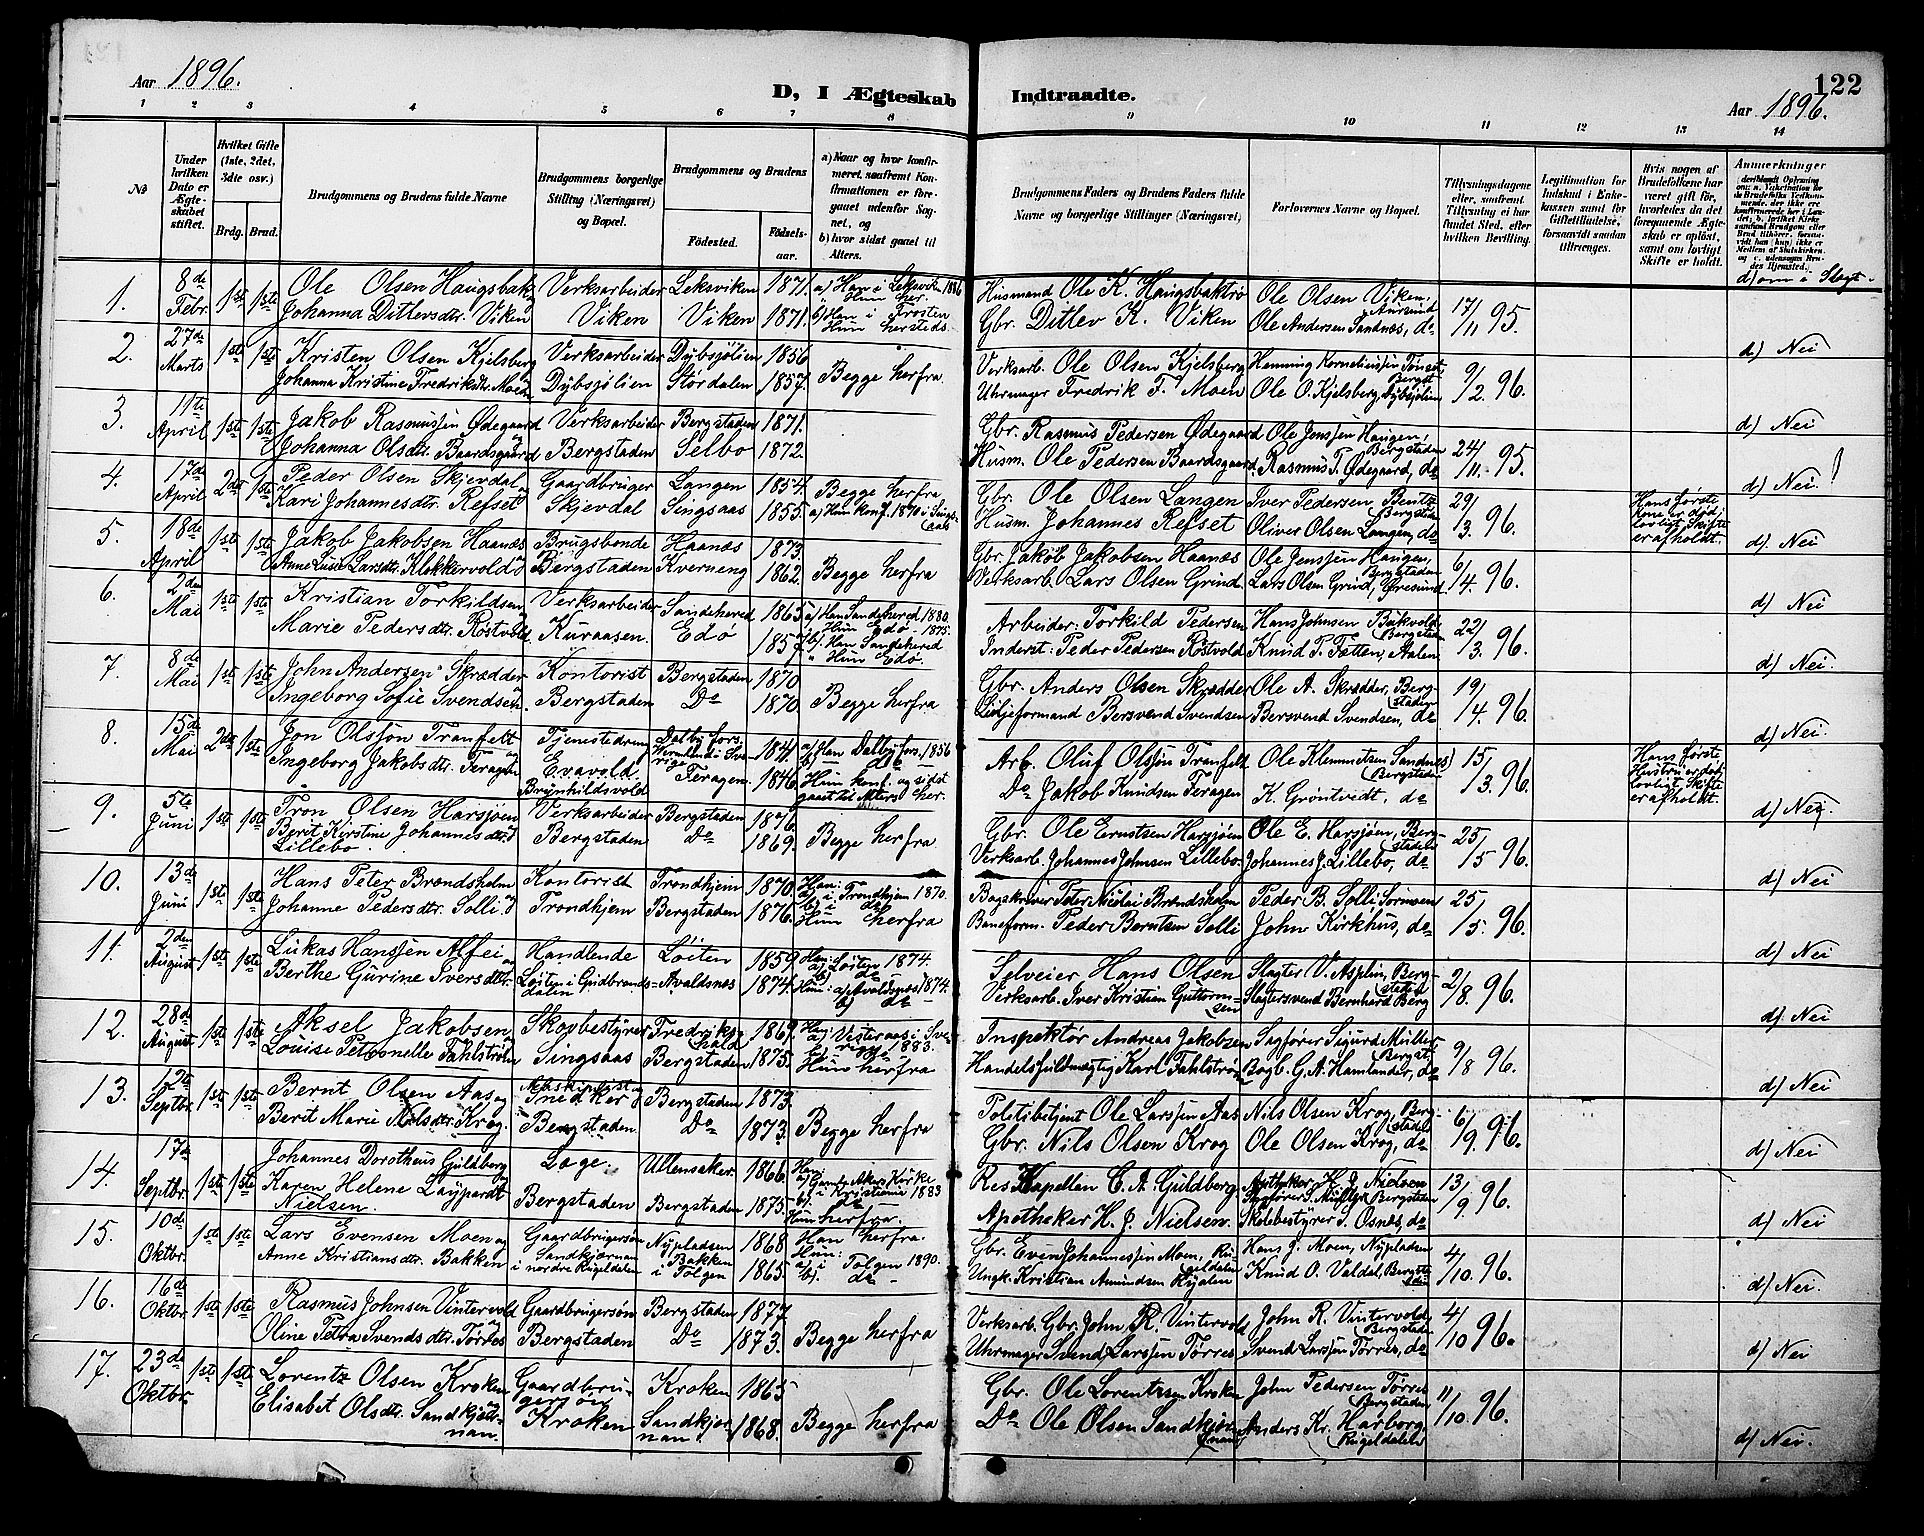 Aar 1896.
D, I Ægteskab Indtraadte.
122
Aar 1896.
1 2 3 4 5 6 7 8 9 10 11 12 13 14
No
Under hvilken Dato er Ægteskabet stiftet.
Hvilket Gifte (1ste, 2det, 3die osv.)
Brdg. Brud.
Brudgommens og Brudens fulde Navne
Brudgommens borgerlige Stilling (Næringsvei) og Bopæl.
Brudgommens og Brudens
Fødested.
Fødselsaar.
a) Naar og hvor konfirmeret, saafremt Konfirmationen er foregaaet udenfor Sognet, og
b) hvor sidst gaaet til Alters.
Brudgommens Faders og Brudens Faders fulde Navne og borgerlige Stillinger (Næringsvei)
Forlovernes Navne og Bopæl.
Tillysningsdagene eller, saafremt Tillysning ei har fundet Sted, efter hvilken Bevilling.
Legitimation for Indskud i Enkekassen samt for Giftetilladelse, forsaavidt saadan tiltrænges.
Hvis nogen af Brudefolkene har været gift før, hvorledes da det foregaaende Ægteskab er opløst, samt om lovligt Skifte er holdt.
Anmerkninger
d) om i Slegt.
1. 8de Febr. 1ste 1ste Ole Olsen Haugsbakk Verksarbeider Leksviken 1871. a) Han i Leksviken 1886 Hun her. Husmand Ole K. Haugsbaktrø Ole Olsen Viken, Aursund 17/11 95.
Johanna Ditlevsdtr. Viken Viken Viken 1871. b) Han i Frosten Hun hersteds. Gbr. Ditlev K. Viken Ole Andersen Sandnæs, do d) Nei
2. 27de Marts 1ste 1ste Kristen Olsen Kjelsberg Verksarbeider Dybsjølien 1856 Verksarb. Ole Olsen Kjelsberg Henning Korneliussen Bergst. 9/2 96.
Johanna Kristine Fredriksdtr. Moen Dybsjølien Stordalen 1857. Begge herfra Uhrmager Fredrik F. Moen Ole O. Kjelsberg, Dybsjølien d) Nei
3. 11te April 1ste 1ste Jakob Rasmussen Ødegaard Verksarbeider Bergstaden 1871. Gbr. Rasmus Pedersen Ødegaard Ole Jonssen Haugen, Bergstaden 24/11 95.
Johanna Olsdtr. Baardsgaard Bergstaden Selbo 1872. Husm. Ole Pedersen Baardsgaard Rasmus P. Ødegaard, do d) Nei!
4. 17de April 2det 1ste Peder Olsen Skjevdal Gaardbruger Langen 1854. Begge herfra Gbr. Ole Olsen Langen Iver Pedersen Bentz Bergstaden 29/3 96. Hans første Kone er død; lovligt Skifte er afholdt.
Kari Johannesdtr. Refset Skjevdal Singsaas 1855. a) Hun konf. 1870 i Singsaas Husm. Johannes Refset Oliver Olsen Langen, do d) Nei
5. 18de April 1ste 1ste Jakob Jakobsen Haanæs Brugsbonde Haanæs 1873. Gbr. Jakob Jakobsen Haanæs Ole Jenssen Haugen, Bergstaden 6/4 96.
Anne Lise Larsdtr. Klokkervold Bergstaden Kverneng 1862. Begge herfra Verksarb. Lars Olsen Grind Lars Olsen Grind, Øresund d) Nei
6. 2den Mai 1ste 1ste Kristian Torkildsen Verksarbeider Sandehered 1865 a) Han Sandehered 1880. Hun Edø 1875. Arbeider: Torkild Pedersen Hans Johnsen Bakvold Bergstaden 22/3 96.
Marie Pedersdtr. Røstvold Kuraasen. Edø 1857 b) Han Sandehered Hun Edø. Inderst: Peder Pedersen Røstvold Knud P. Fetten, Aalen d) Nei.
7. 8de Mai 1ste 1ste John Andersen Skrædder Kontorist Bergstaden 1870 Gbr. Anders Olsen Skrædder Ole A. Skrædder, Bergstaden 19/4 96.
Ingeborg Sofie Svendsen. Bergstaden Do 1870 Begge herfra Bersvend Svendsen Bersvend Svendsen, do d) Nei.
8. 15de Mai 2det 1ste Jon Olssøn Tranfelt Tjenestedreng Dalby fors. Wermland i Sverige 1841. a) Han Dalby fors. 1856 b) do Arb. Oluf Olssøn Tranfelt Ole Klemmetsen Sandnes, Bergstaden 15/3 96. Hans første Hustru er død, lovligt Skifte er afholdt.
Ingeborg Jakobsdtr. Feragen Evavold Brynhildsvold Feragen 1846. Hun konf. og sidst gaaet til Alters her. Do Jakob Knudsen Feragen K. Grøntvedt, do d) Nei.
9. 5te Juni 1ste 1ste Tron Olsen Harsjøen Verksarbeider Bergstaden 1876. Gbr. Ole Ernstsen Harsjøen Ole E. Harsjøen, Bergstaden 25/5 96.
Berit Kirstine Johannesdtr. Lillebo. Bergstaden Do 1869. Begge herfra Verksarb. Johannes Johnsen Lillebo. Johannes J. Lillebo, do d) Nei
10. 13de Juni 1ste 1ste Hans Peter Brandsholm Kontorist Trondhjem 1870. Han: a) i Trondhjem 1870. b) do Bogskriver Peter Nicolai Brandsholm Peder B. Solli Sørmoen 25/5 96.
Johanne Pedersdtr. Solli. Trondhjem Bergstaden 1876. Hun herfra Baneform. Peder Berntsen Solli John Kirkhus, do d) Nei
11. 2den August 1ste 1ste Lukas Hanssen Alfei og Handlende Løiten 1859 Han: a) Løiten 1874. b) do Selveier Hans Olsen Slagter V. Asplin, Bergstaden 2/8 96.
Berthe Gurine Iversdtr. Løiten i Gudbrandsdalen Avaldsnæs 1874. Hun: a) Avaldsnæs 1874. b) do Verksarb. Iver Kristian Guttormsen Slagtersvend Bernhard Berg d) Nei
12. 28de August 1ste 1ste Aksel Jakobsen Skovbestyrer Fredrikshald 1869. Han: a) Vesteraas i Sverige 1883. Inspektør Andreas Jakobsen Sagfører Sigurd Müller Bergst. 9/8 96.
Louise Petronelle Fahlstrøm Singsaas Bergstaden 1875. Hun herfra Handelsfuldmægtig Karl Fahlstrøm Bogb. G. A. Hamlander, do d) Nei
13. 12te Septbr. 1ste 1ste Bernt Olsen Aas og Snedker Bergstaden 1873. Politibetjent Ole Larssen Aas Nils Olsen Krog, Bergstaden 6/9 96.
Berit Marie Nilsdtr. Krog. Bergstaden Do 1873. Begge herfra Gbr. Nils Olsen Krog Ole Olsen Krog, do d) Nei
14. 17de Septbr. 1ste 1ste Johannes Dorotheus Guldberg Læge. Ullensaker. 1866. Han: a) Gamle Akers Kirke i Kristiania 1883 b) do Res Kapellan C. A. Guldberg. Apotheker H. J. Nielsen Sagfører S. Müller Bergstaden 13/9 96.
Karen Helene Nielsen. Bergstaden Bergstaden 1875. Hun herfra. Apotheker H. J. Nielsen. Skolebestyrer S. Osnæs, do d) Nei
15. 10de Oktbr. 1ste 1ste Lars Evensen Moen og Gaardbrugersøn Nypladsen 1868. Han herfra. Gbr. Even Johannessen Moen, Rugeldalen Hans J. Moen, Nypladsen 4/10 96.
Anne Kristiansdtr. Bakken Sandkjærnan i nordre Rugeldalen Bakken i Tolgen 1865. Hun: a) i Tolgen 1890. b) do Ungk. Kristian Amundsen Knud O. Valdal, Bergstaden d) Nei
16. 16de Oktbr. 1ste 1ste Rasmus Johnsen Vintervold Gaardbrugersøn Bergstaden 1877 Verksarb. Gbr. John R. Vintervold John R. Vintervold Bergstaden 4/10 96.
Oline Petra Svendsdtr. Tørres Bergstaden Do 1873. Begge herfra Uhrmager Svend Larssen Tørres Svend Larssen Tørres, do d) Nei
17. 23de Oktbr. 1ste 1ste Lorentz Olsen Kroken Gaardbrugersøn Kroken 1865 Gbr. Ole Lorentzsen Kroken John Pedersen Tørres Bergstaden 11/10 96.
Elisabet Olsdtr. Sandkjernan. Kroken Sandkjernan. 1868. Begge herfra Do Ole Olsen Sandkjernan Anders Kr. Harborg, Rugeldalen d) Nei.